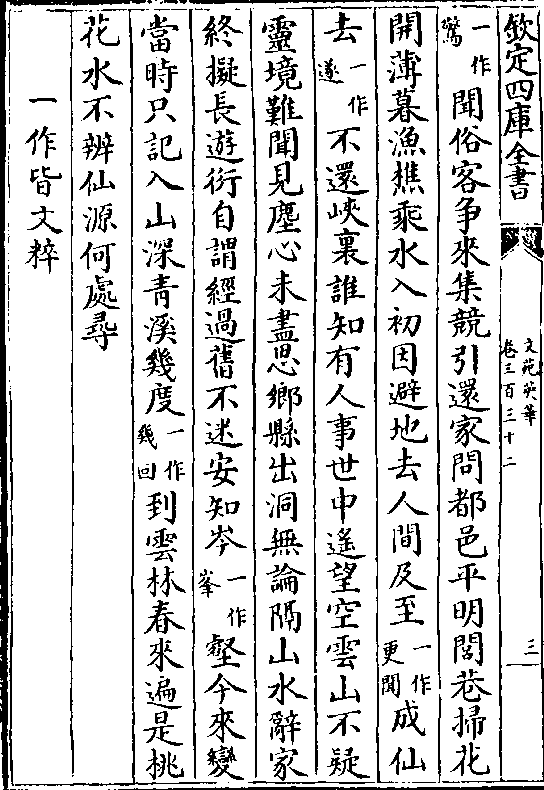 欽定四庫全書
文苑英華
卷三百三十二
三
一作驚聞俗客爭來集競引還家問都邑平明閭巷掃花
開薄暮漁樵乘水入初因避地去人間及至一作更聞成仙
去一作遂不還峽裏誰知有人事世中遙望空雲山不疑
靈境難聞見塵心未盡思鄉縣出洞無論隔山水辭家
終擬長遊衍自謂經過舊不迷安知岑一作峯壑今來變
當時只記入山深青溪幾度一作幾回到雲林春來遍是桃
花水不辨仙源何處尋
一作皆文粹